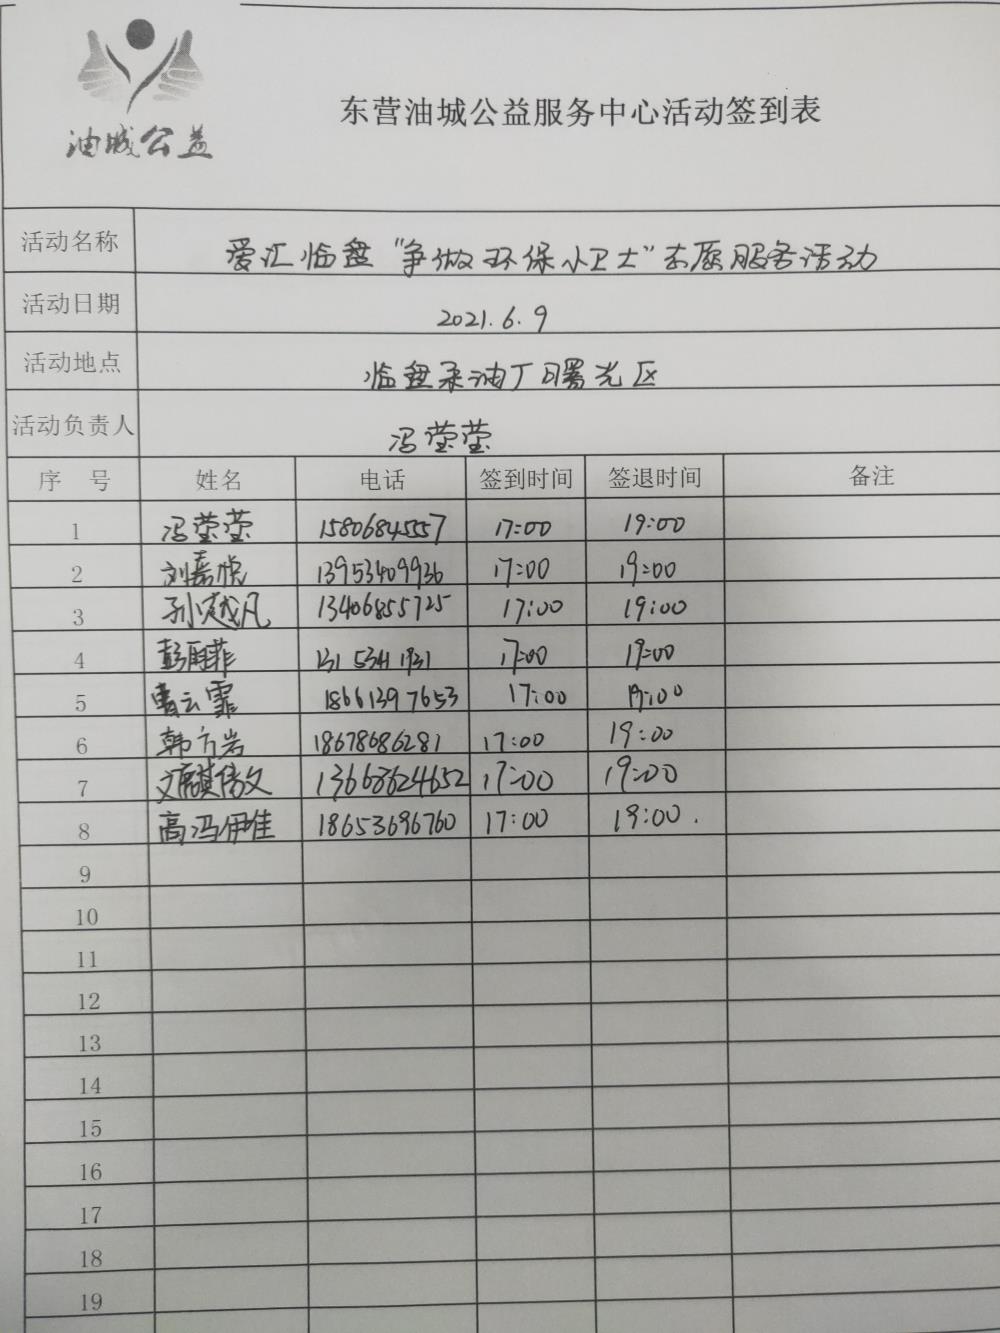 油城公益
东营油城公益服务中心活动签到表
活动名称 爱汇临盘“争做环保小卫士”志愿服务活动
活动日期 2021.6.9
活动地点 临盘采油厂曙光区
活动负责人 冯莹莹
序 号 姓名 电话 签到时间 签退时间 备注
1 冯莹莹 15806845557 17:00 19:00
2 刘嘉悦 13953409936 17:00 19:00
3 孙越凡 13406855725 17:00 19:00
4 17:00 19:00
5 曹云霏 18661397653 17:00 19:00
6 韩方岩 18678686281 17:00 19:00
7 13668624652 17:00 19:00
8 高冯伊佳 18653696760 17:00 19:00.
9
10
11
12
13
14
15
16
17
18
19